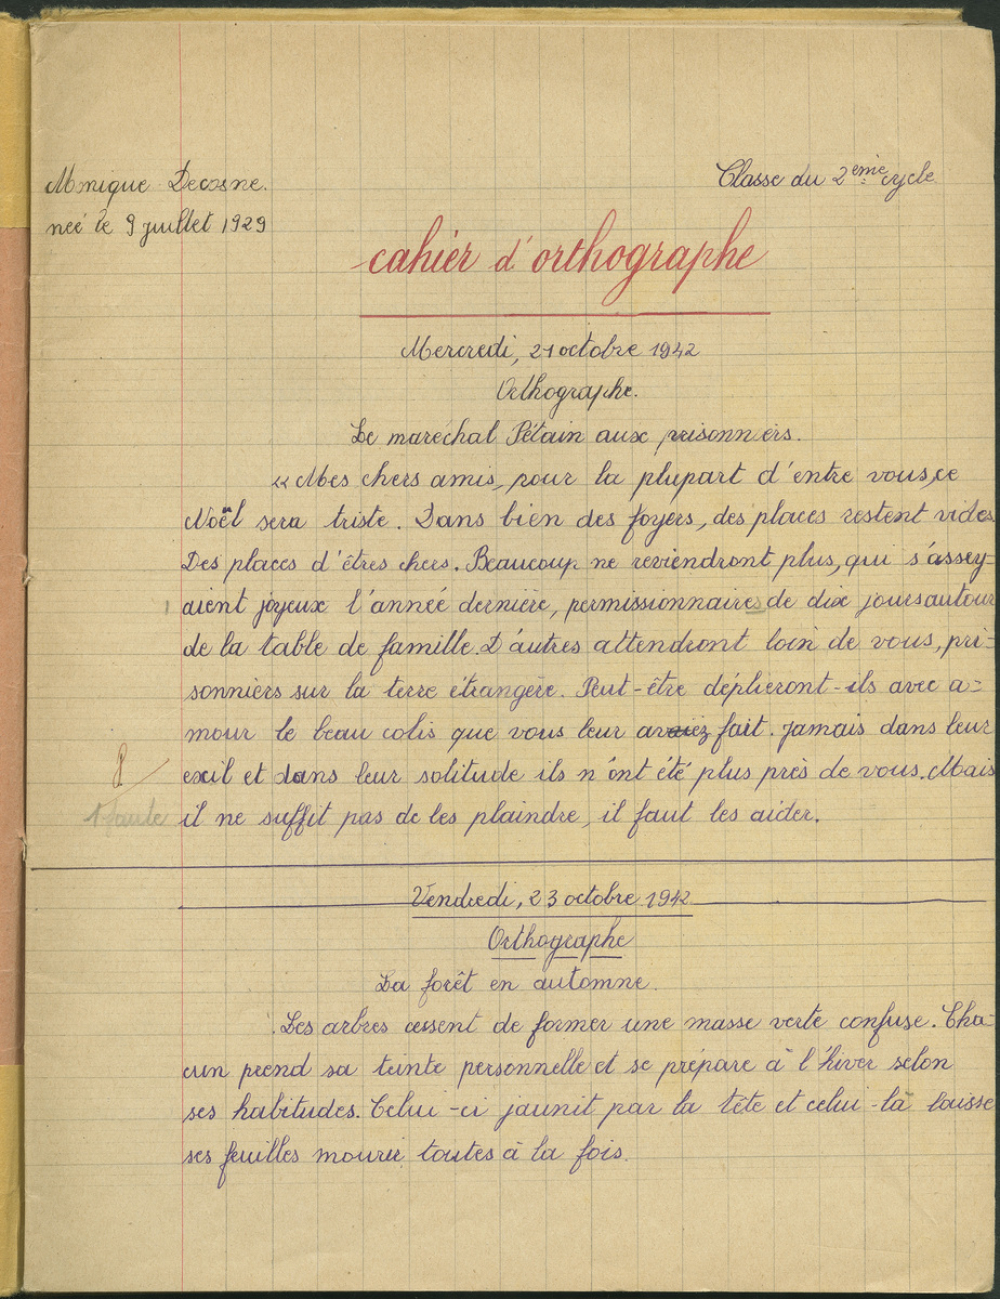 Monique Decosne.
Classe du 2ème cycle
née le 9 juillet 1929
cahier d'orthographe
Mercredi, 21 octobre 1942
Orthographe.
Le maréchal Pétain aux prisonniers.
« Mes chers amis, pour la plupart d'entre vous, ce
Noël sera triste. Dans bien des foyers, des places restent vides
Des places d'êtres chers. Beaucoup ne reviendront plus, qui s'assey-
aient joyeux l'année dernière, permissionnaires de dix jours autour
de la table de famille. D'autres attendront loin de vous, pri-
sonniers sur la terre étrangère. Peut-être déplieront-ils avec a-
mour le beau colis que vous leur aviez fait. Jamais dans leur
exil et dans leur solitude ils n'ont été plus près de vous. Mais
il ne suffit pas de les plaindre, il faut les aider.
8
1 faute
Vendredi, 23 octobre 1942
Orthographe
La forêt en automne.
Les arbres cessent de former une masse verte confuse. Cha-
cun prend sa teinte personnelle et se prépare à l'hiver selon
ses habitudes. Celui-ci jaunit par la tête et celui-là laisse
ses feuilles mourir toutes à la fois.